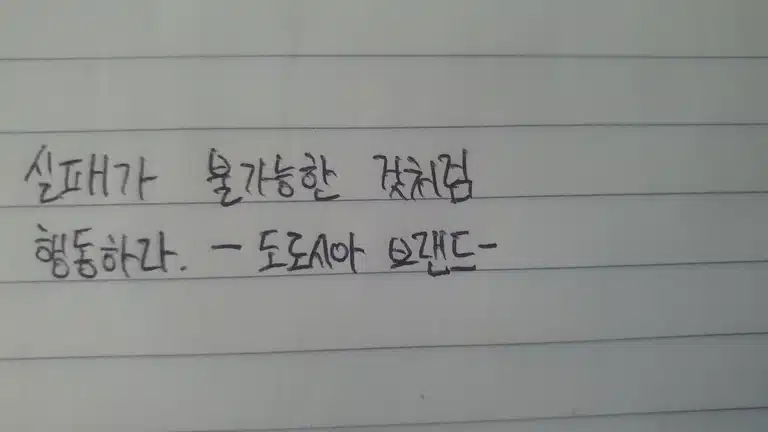 실패가 불가능한 것처럼
행동하라. - 도로시아 브랜드-